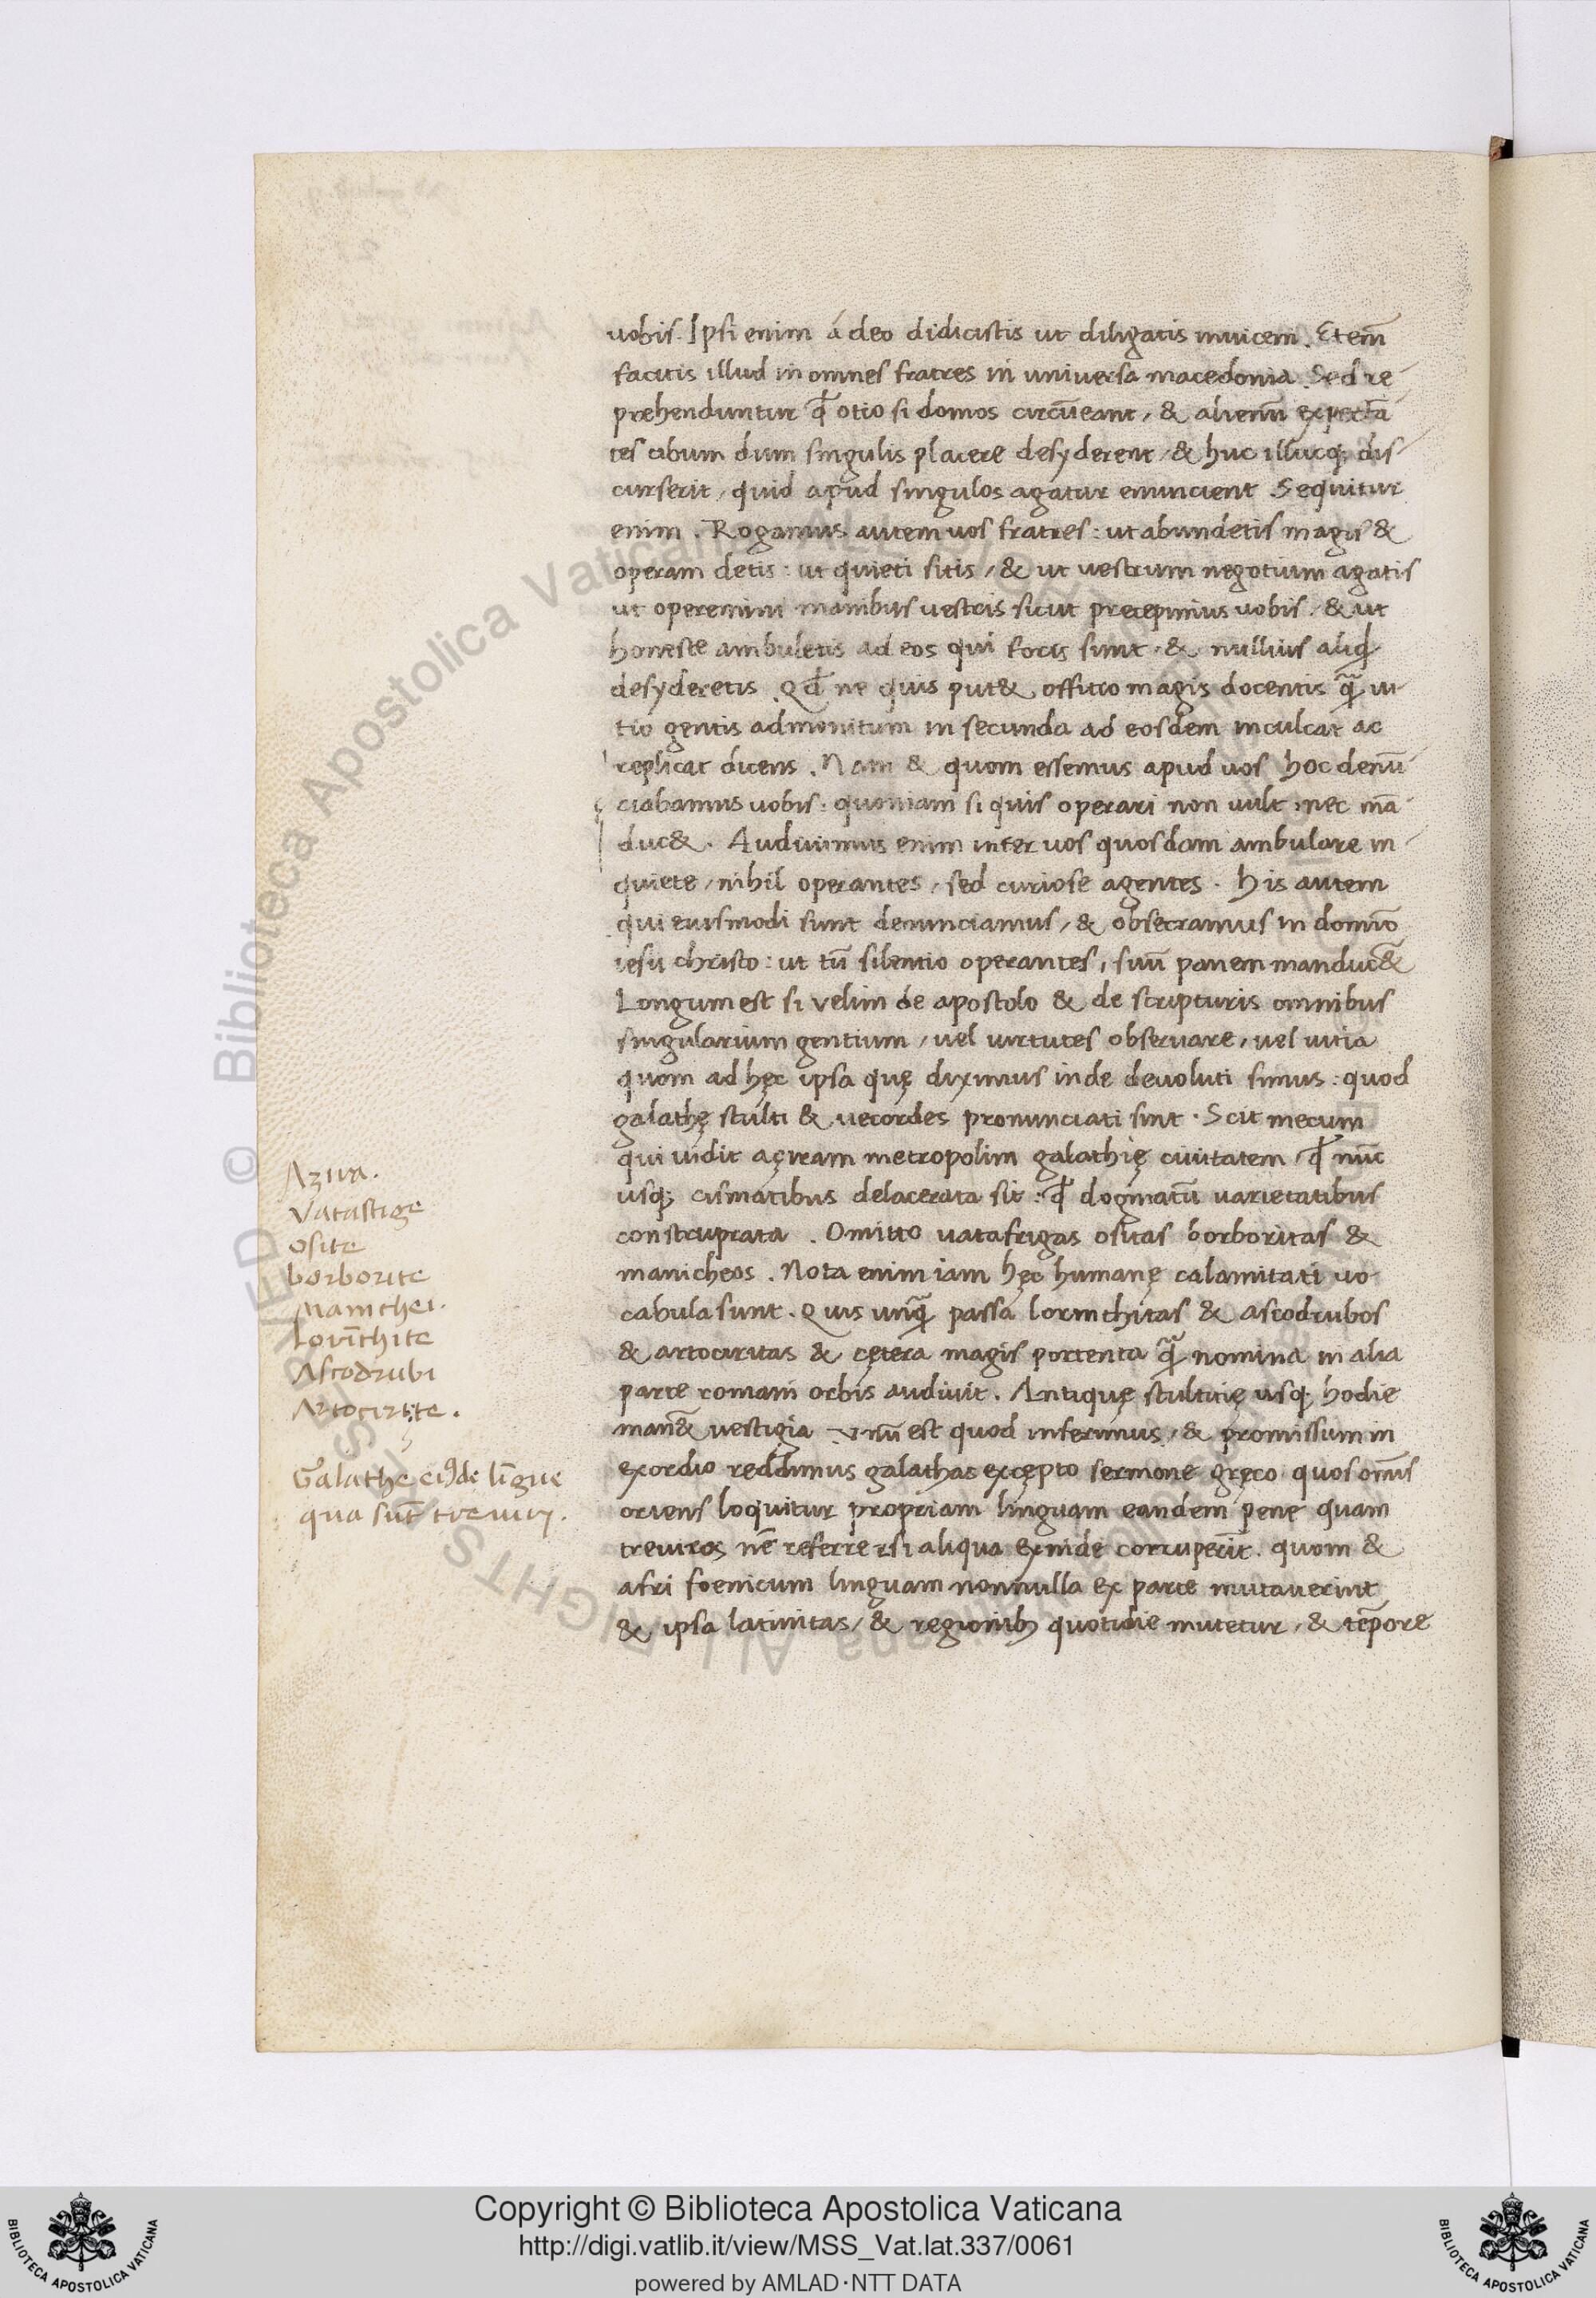 uobis. Ipsi enim á deo didicistis ut diligatis inuicem. Et eni̅
facitis illud in omnes fratres in universa macedonia. Sed re-
prehenduntur qď otio si domos circu̅eant, & alienu̅ expecta̅
tes cibum dum singulis placere desyderent, & huc illucq; dis-
curserit, quid apud singulos agatur enuncient. Sequitur
enim. Rogamus autem uos fratres: ut abundetis magis &
operam detis: ut quieti sitis, & ut uestrum negotium agatis
ut operemini manibus vestris sicut precepimus uobis, & ut
honeste ambuletis ad eos qui foris sunt. & nullius aliqď
desyderetis. Qď ne quis put& offitio magis docentis qua̅ ui-
tio gentis admonitum in secunda ad eosdem inculcat ac
replicat dicens. Nam & quom essemus apud uos hoc denu̅
ciabamus uobis: quoniam si quis operari non uult nec ma̅-
duc&. Audiuimus enim inter uos quosdam ambulare in-
quiete, nihil operantes, sed curiose agentes. His autem
qui euismodi sunt denunciamus, & obsecramus in domi̅o
iesu christo: ut cu̅ silentio operantes, suu̅ panem manduc&̅
Longum est si velim de apostolo & de scripturis omnibus
singularium gentium, uel uirtutes obseruare, uel uitia
quom ad hęc ipsa quę diximus inde deuoluti simus: quod
galathę stulti & uecordes pronunciati sint. Scit mecum
qui uidit açiram metropolim galathię ciuitatem, qď nu̅c
usq; cismatibus delacerata sit: qď dogmatu̅ uarietatibus
construprata. Omitto uatafrigas ositas borboritas &
manicheos. Nota enim iam hęc humanę calamitati uo-
cabula sunt. Quis unqua̅ passa lorinthitas & ascodrubos
& artociritas & cętera magis portenta qua̅ nomina in alia
parte romani orbis audiuit. Antiquę stulticię usq; hodie
man&̅ uestigia. Vnu̅ est quod inferimus, & promissum in
exordio reddimus galathas excępto sermone gręco quos om̅is
oriens loquitur propriam linguam eandem penę quam
treuiros ne̅ referre si aliqua exinde corruperi̅t. quom &
afri foenicum linguam nonnulla ex parte mutauerint
& ipsa latinitas, & regionib; quotidie mutetur, & te̅pore
Azira.
Vatastige
Osite
borborite
Manichei.
Lori̅thite
Ascodrubi
Artocirite.
Galathe eiꝰde li̅gue
qua su̅t treuiri.
© Biblioteca Apostolica Vaticana ALL RIGHTS RESERVED
Copyright © Biblioteca Apostolica Vaticana
http://digi.vatlib.it/view/MSS_Vat.lat.337/0061
powered by AMLAD·NTT DATA
BIBLIOTECA APOSTOLICA VATICANA
BIBLIOTECA APOSTOLICA VATICANA